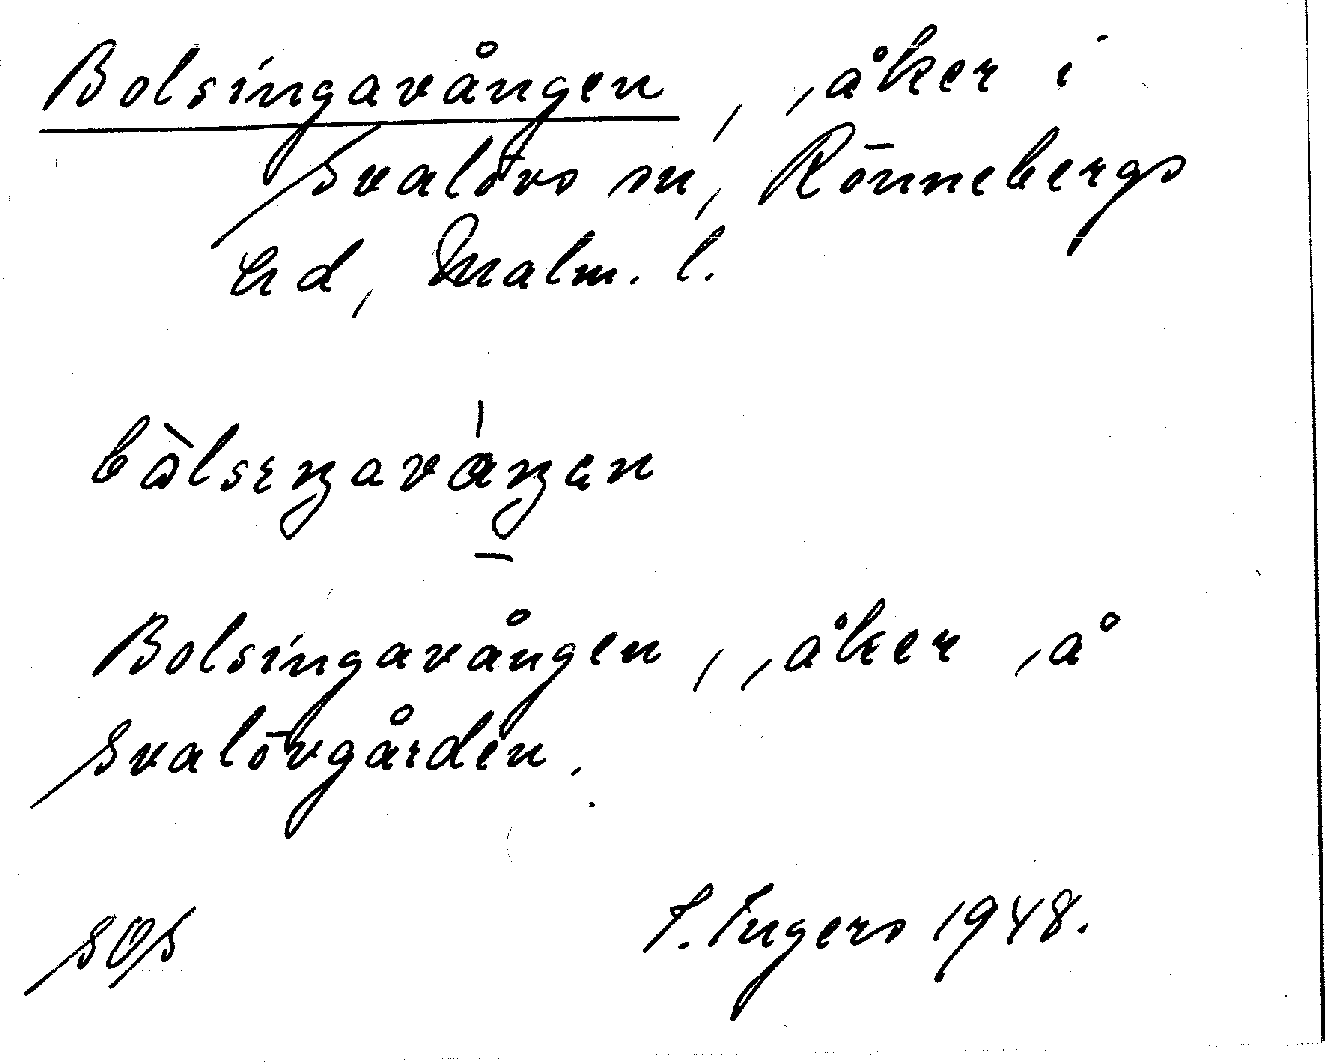 Bolsingavången, åker i
Svalövs sn, Rönnebergs
hd, Malm. l.
Bolsingavången, åker å
Svalövgården.
SOS I. Ingers 1948.